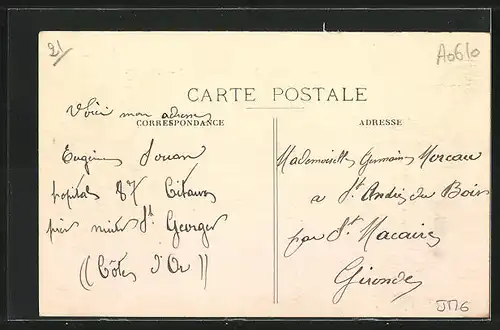 21
A0610
CARTE POSTALE
Voici mon adresse
CORRESPONDANCE
ADRESSE
Eugénie Jouan
hopital 87 Citeaux
près nuits St Georges
((Côtes d'Or))
Mademoiselle Germaine Moreau
a St André du Bois
par St Macaire
Gironde